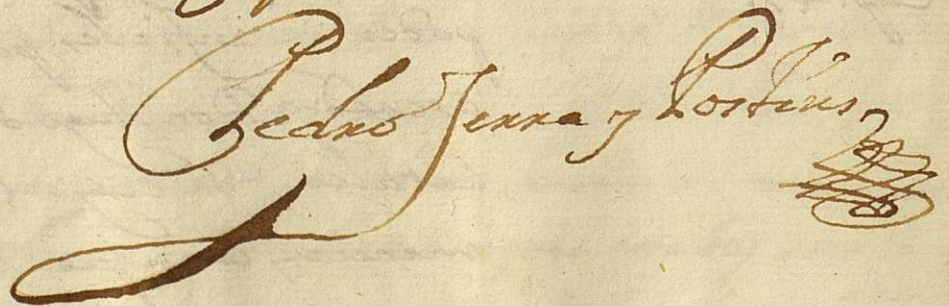 Pedro Serra y Postius